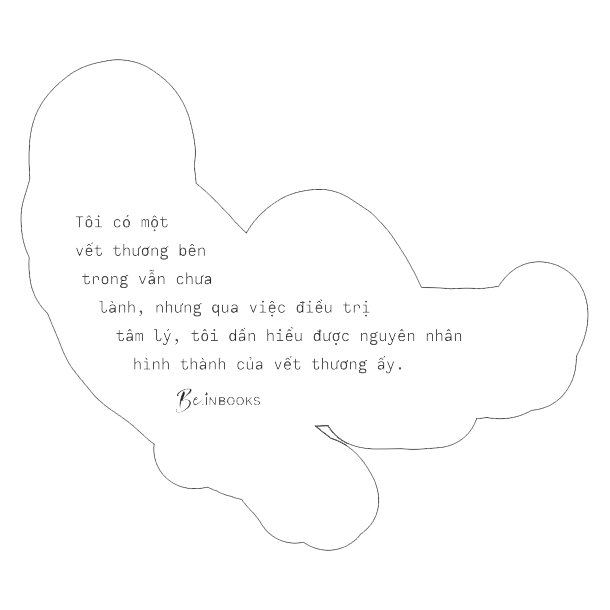 Tôi có một
vết thương bên
trong vẫn chưa
lành, nhưng qua việc điều trị
tâm lý, tôi dần hiểu được nguyên nhân
hình thành của vết thương ấy.
Be.iNBOOKS